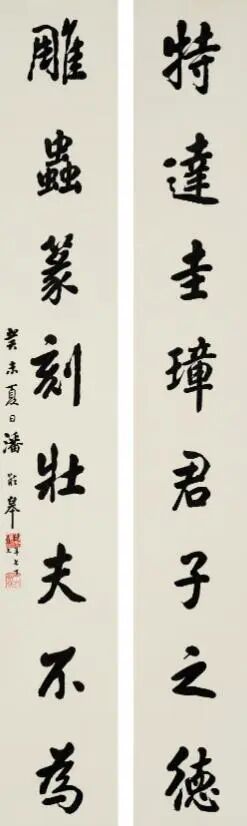 特達圭璋君子之德
雕蟲篆刻壯夫不為
癸未夏日潘齡皋